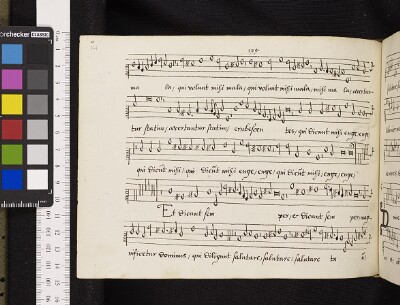 colorchecker CLASSIC
109
ma la, qui volunt mihi mala, qui volunt mihi mala, mihi ma la, avertan-
tur statim, avertantur statim, erubescen tes, qui dicunt mihi euge, euge
qui dicunt mihi, qui dicunt mihi euge, euge, qui dicunt mihi, euge, euge,
Et dicant sem per, et dicant sem per, mag-
nificetur Dominus, qui diligunt salutare, salutare, salutare tu